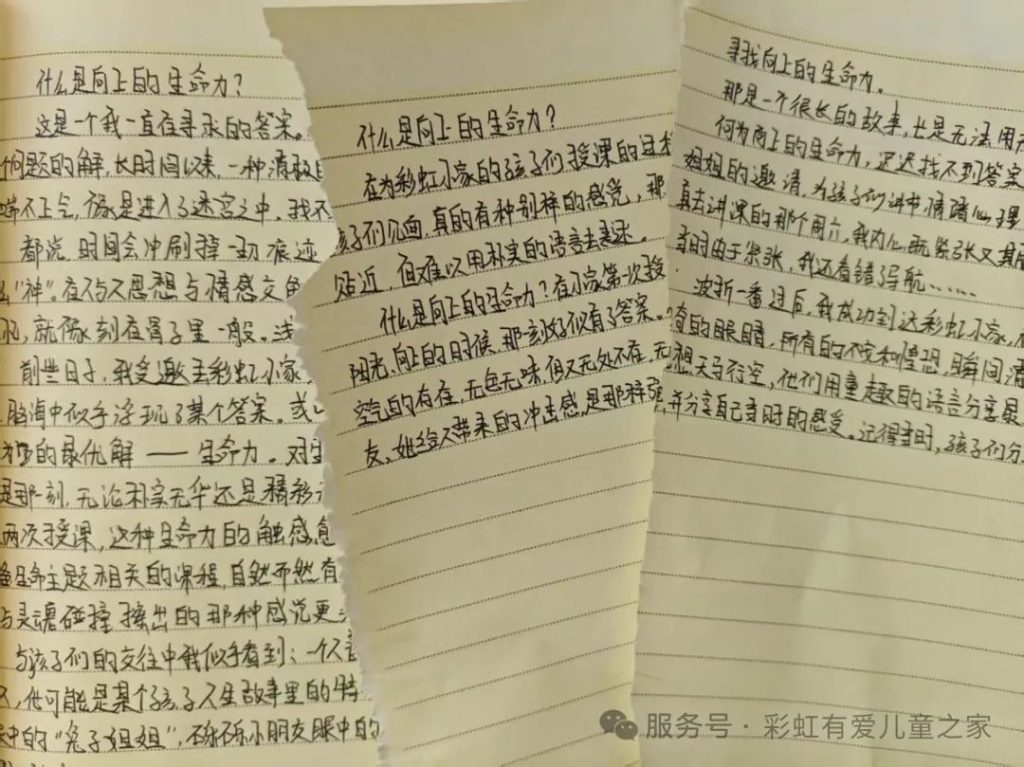 什么是向上的生命力?
这是一个我一直在寻求的答案。
个问题的解,长时间以来,一种消极
喘不上气,像是进入了迷宫之中,找不
都说,时间会冲刷掉一切痕迹
么"神"。在不与人思想与情感交
,就像刻在骨子里一般。浅
前些日子,我受邀去彩虹小家,
脑海中似乎浮现了某个答案。或
的最优解——生命力。对
是那一刻,无论朴实无华还是精彩
两次授课,这种生命力的触感愈
生命主题相关的课程,自然而然有
与灵魂碰撞擦出的那种感觉更
与孩子们的交往中我似乎看到:一个人
,他可能是某个孩子人生故事里的特
眼中的"兔子姐姐",硕硕小朋友眼中的
什么是向上的生命力?
在为彩虹小家的孩子们授课的过
孩子们见面,真的有种别样的感觉,那
贴近,但难以用朴实的语言去表述。
什么是向上的生命力?在小家第一次授
阳光、向上的时候,那刻好似有了答案。
空气的存在,无色无味,但又无处不在,无
友,她给人带来的冲击感,是那样强
寻找向上的生命力。
那是一个很长的故事,也是无法用
何为向上的生命力,迟迟找不到答案
姐姐的邀请,为孩子们讲书情绪心理
真去讲课的那个周六,我内心既紧张又期
当时由于紧张,我还看错了导航……
波折一番过后,我成功到达彩虹小家,
的眼睛,所有的不安和惶恐,瞬间消
想天马行空,他们用童趣的语言分享最
并分享自己当时的感受。记得当时,孩子们分
服务号·彩虹有爱儿童之家